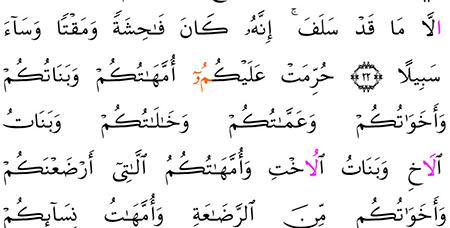 الَّا مَا قَدْ سَلَفَ ۚ إِنَّهُۥ كَانَ فَـٰحِشَةً وَمَقْتًا وَسَآءَ
سَبِيلًا ۝٢٢ حُرِّمَتْ عَلَيْكُمُۥٓ أُمَّهَـٰتُكُمْ وَبَنَاتُكُمْ
وَأَخَوَٰتُكُمْ وَعَمَّـٰتُكُمْ وَخَـٰلَـٰتُكُمْ وَبَنَاتُ
ٱلَاخِ وَبَنَاتُ ٱلُاخْتِ وَأُمَّهَـٰتُكُمُ ٱلَّـٰتِىٓ أَرْضَعْنَكُمْ
وَأَخَوَٰتُكُم مِّنَ ٱلرَّضَـٰعَةِ وَأُمَّهَـٰتُ نِسَآئِكُمْ